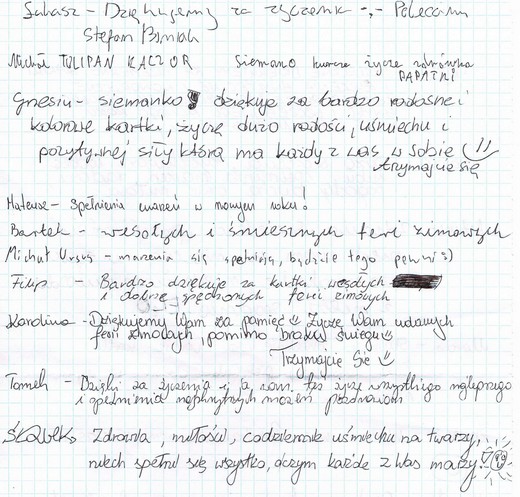 Łukasz - Dziękujemy za życzenia -,- Polecam
Stefan
Michał TULIPAN KACZOR Siemano kurcze życzę zdrówka
PAPATKI
Gnesiu - siemanko dziękuję za bardzo radosne i
kolorowe kartki, życzę dużo radości, uśmiechu i
pozytywnej siły którą ma każdy z was w sobie
trzymajcie się
Mateusz - Spełnienia marzeń w nowym roku!
Bartek - wesołych i śmiesznych feri zimowych
Michał Ursus - marzenia się spełniają, bądźcie tego pewni :)
Filip - Bardzo dziękuje za kartki wesołych
i dobrze spędzonych ferii zimowych
Karolina - Dziękujemy Wam za pamięć Życzę Wam udanych
ferii zimowych, pomimo braku śniegu
Trzymajcie Się
Tomek - Dzięki za życzenia i ja wam też życzę wszystkiego najlepszego
i spełnienia marzeń pozdrawiam
Zdrowia, miłości, codziennie uśmiechu na twarzy,
niech spełni się wszystko, o czym każde z Was marzy.